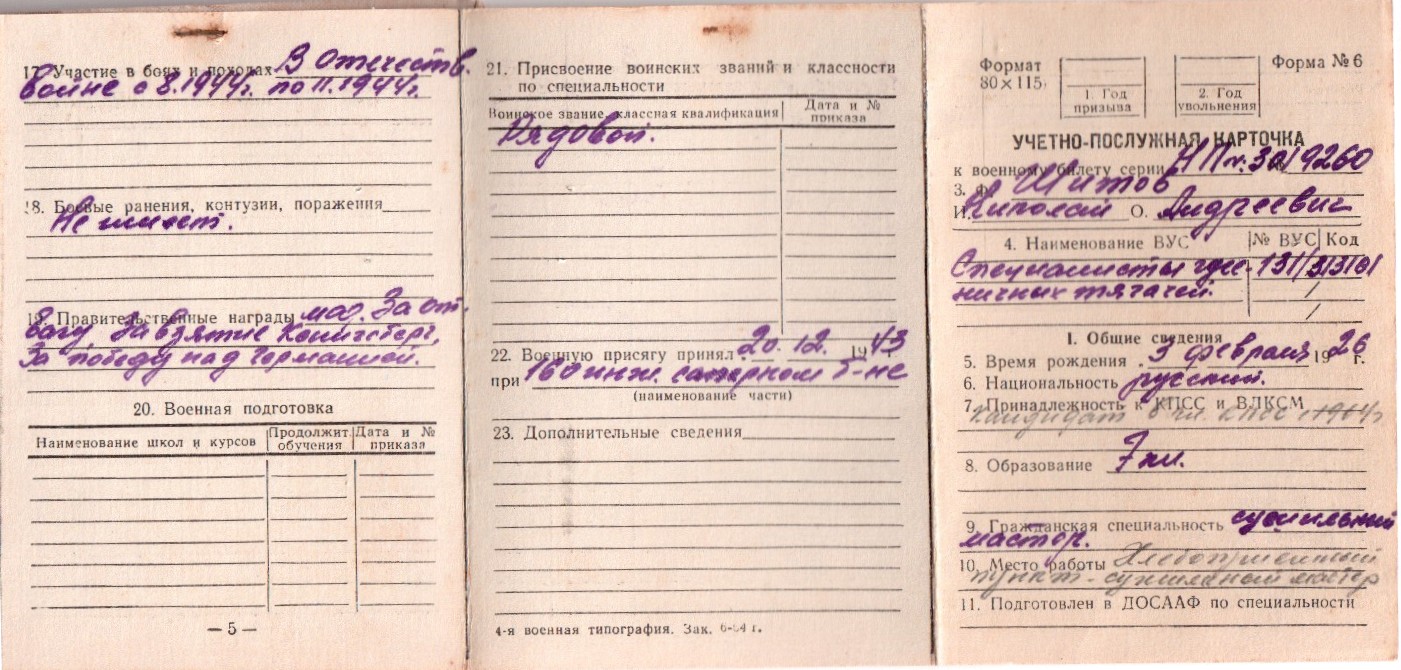 17. Участие в боях и походах В Отечеств.
войне с 8.1944г. по 11.1944г.
18. Боевые ранения, контузии, поражения
Не имеет.
19. Правительственные награды мед. За от-
вагу, За взятие Кенигсберг,
За победу над Германией.
20. Военная подготовка
Наименование школ и курсов
Продолжит. обучения
Дата и № приказа
— 5 —
21. Присвоение воинских званий и классности
по специальности
Воинское звание, классная квалификация
Дата и № приказа
Рядовой.
22. Военную присягу принял 20. 12. 1943
при 160 инж. саперном б-не
(наименование части)
23. Дополнительные сведения
4-я военная типография. Зак. 6-64 г.
Формат
80×115
1. Год
призыва
2. Год
увольнения
Форма № 6
УЧЕТНО-ПОСЛУЖНАЯ КАРТОЧКА
к военному билету серии НП № 3019260
3. Ф. Шитов
И. Николай О. Андреевич
4. Наименование ВУС
№ ВУС
Код
Специалисты гусе-
ничных тягачей.
I. Общие сведения
5. Время рождения 3 февраля 1926 г.
6. Национальность русский.
7. Принадлежность к КПСС и ВЛКСМ
кандидат в чл. КПСС с 1964г
8. Образование 7 кл.
9. Гражданская специальность сушильный
мастер.
10. Место работы Хлебоприемный
пункт - сушильный мастер
11. Подготовлен в ДОСААФ по специальности